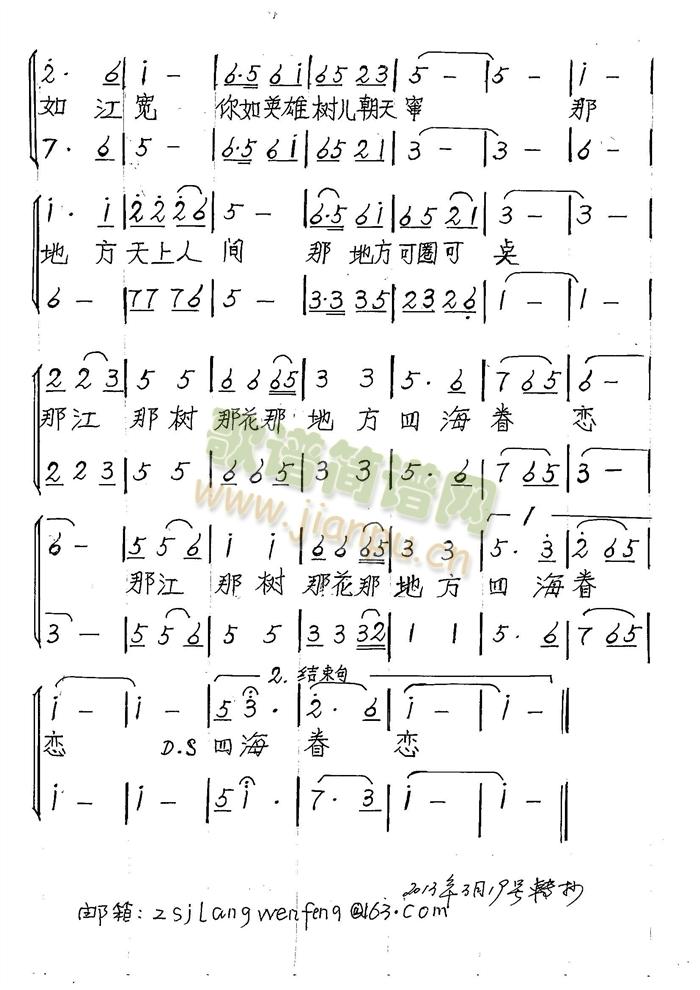 2̇· 6 | i̇ - | 6·5 6 i̇ | 65 23 | 5 - | 5 - | i̇ - |
如江宽 你如英雄树儿朝天 那
7· 6 | 5 - | 6·5 6 i̇ | 65 21 | 3 - | 3 - | 6 - |
i̇· i̇ | 2̇ 2̇ 2̇ 6 | 5 - | 6·5 6 i̇ | 65 21 | 3 - | 3 - |
地方天上人间 那地方可圈可
6 - | 77 76 | 5 - | 3·3 35 | 23 26̣ | 1 - | 1 - |
2 2 3 | 5 5 | 6 6 65 | 3 3 | 5· 6 | 7 65 | 6 - |
那江那树那花那地方四海眷恋
2 2 3 | 5 5 | 6 6 5 | 3 3 | 5· 6 | 7 65 | 3 - |
歌谱简谱网
www.jianpu.cn
1
6 - | 5 5 6 | i̇ i̇ | 6 6 65 | 3 3 | 5· 3̇ | 2̇ 65 |
那江那树那花那地方四海眷
3 - | 5 5 6 | 5 5 | 3 3 32 | 1 1 | 5· 6 | 7 65 |
2. 结束句
i̇ - | i̇ - | 5 3̇ · | 2̇· 6 | i̇ - | i̇ - ‖
恋 D.S 四海眷恋
i̇ - | i̇ - | 5 i̇ · | 7· 3 | i̇ - | i̇ - ‖
2013年3月19号转抄
邮箱: zsjlangwenfeng@163.com